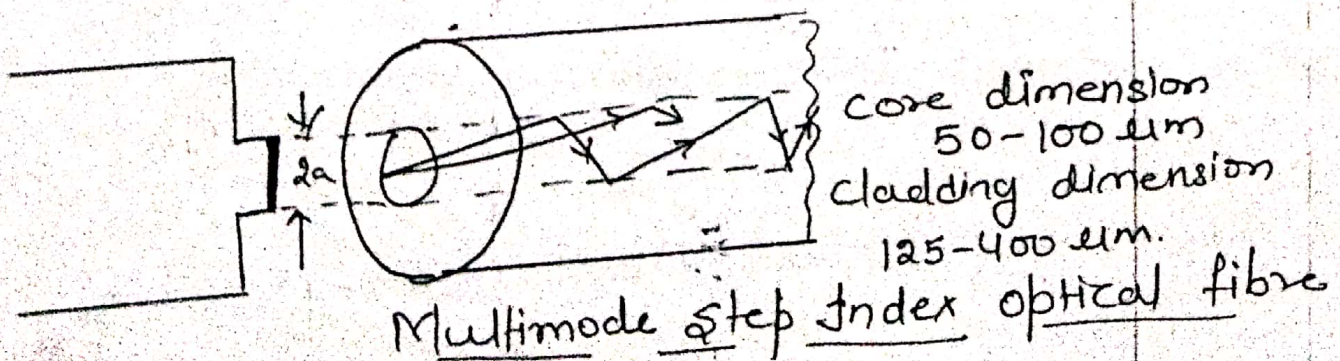 2a
core dimension
50-100 μm
Cladding dimension
125-400 μm.
Multimode Step Index optical fibre